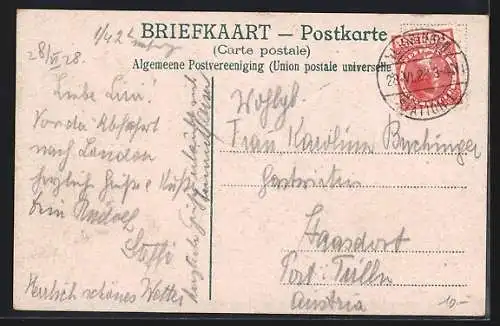 BRIEFKAART — Postkarte
(Carte postale)
Algemeene Postvereeniging (Union postale universelle
28/VI 28.
Liebe Lini!
Vor der Abfahrt
nach London
herzlich Grüße & Küsse
Dein Rudolf
Steffi
Herrlich schönes Wetter
Wohlgb.
Frau Karolina Buchinger
Gastwirtin
Staasdorf
Post: Tulln
Austria
10-